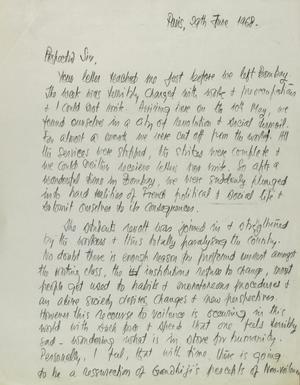 Paris, 29th June 1968.
Respected Sir,
Your letter reached me just before we left Bombay –
The week was terribly charged with work + preoccupations
+ I could not write. Arriving here on the 10th May, we
found ourselves in a city of revolution + social turmoil.
For almost a month we were cut off from the world. All
the services were stopped, the strikes were complete +
we could neither receive letters nor write. So after a
wonderful time in Bombay we were suddenly plunged
into hard realities of French political + social life +
submit ourselves to the consequences.
The students revolt was joined in + strengthened
by the workers + thus totally paralysing the country.
No doubt there is enough reason for profound unrest amongst
the working class, the institutions refuse to change, most
people get used to habit + monotonous procedures and
an alive society desires changes + new perspectives.
However this recourse to violence is occuring in this
world with such force + speed that one feels terribly
sad – wondering what is in store for humanity.
Personally, I feel, that with time, there is going
to be a resurrection of Gandhiji's precepts of Non-violence